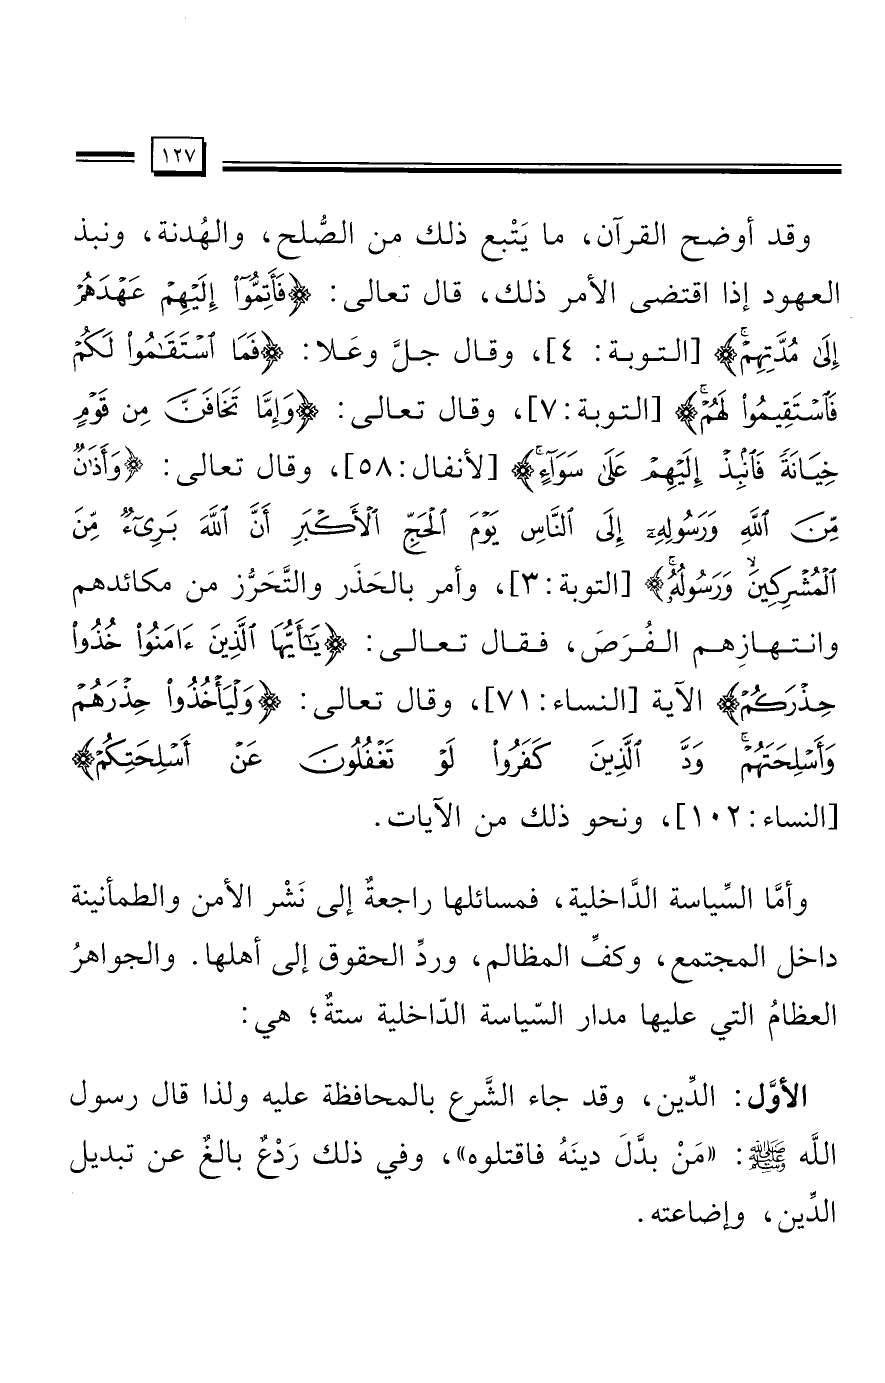 ١٢٧
وقد أوضح القرآن، ما يَتْبع ذلك من الصُّلح، والهُدنة، ونبذ
العهود إذا اقتضى الأمر ذلك، قال تعالى: ﴿فَأَتِمُّوٓا۟ إِلَيْهِمْ عَهْدَهُمْ
إِلَىٰ مُدَّتِهِمْ ۚ﴾ [التوبة: ٤]، وقال جلَّ وعَلا: ﴿فَمَا ٱسْتَقَـٰمُوا۟ لَكُمْ
فَٱسْتَقِيمُوا۟ لَهُمْ ۚ﴾ [التوبة:٧]، وقال تعالى: ﴿وَإِمَّا تَخَافَنَّ مِن قَوْمٍ
خِيَانَةً فَٱنۢبِذْ إِلَيْهِمْ عَلَىٰ سَوَآءٍ ۚ﴾ [لأنفال:٥٨]، وقال تعالى: ﴿وَأَذَٰنٌ
مِّنَ ٱللَّهِ وَرَسُولِهِۦٓ إِلَى ٱلنَّاسِ يَوْمَ ٱلْحَجِّ ٱلْأَكْبَرِ أَنَّ ٱللَّهَ بَرِىٓءٌ مِّنَ
ٱلْمُشْرِكِينَ ۙ وَرَسُولُهُۥ ۚ﴾ [التوبة:٣]، وأمر بالحَذَر والتَّحَرُّز من مكائدهم
وانتهازهم الفُرَصَ، فقال تعالى: ﴿يَـٰٓأَيُّهَا ٱلَّذِينَ ءَامَنُوا۟ خُذُوا۟
حِذْرَكُمْ﴾ الآية [النساء:٧١]، وقال تعالى: ﴿وَلْيَأْخُذُوا۟ حِذْرَهُمْ
وَأَسْلِحَتَهُمْ ۗ وَدَّ ٱلَّذِينَ كَفَرُوا۟ لَوْ تَغْفُلُونَ عَنْ أَسْلِحَتِكُمْ﴾
[النساء:١٠٢]، ونحو ذلك من الآيات.
وأمَّا السِّياسة الدَّاخلية، فمسائلها راجعةٌ إلى نَشْر الأمن والطمأنينة
داخل المجتمع، وكفِّ المظالم، وردِّ الحقوق إلى أهلها. والجواهرُ
العظامُ التي عليها مدار السّياسة الدّاخلية ستةٌ؛ هي:
الأوَّل: الدِّين، وقد جاء الشَّرع بالمحافظة عليه ولذا قال رسول
اللَّه ﷺ: «مَنْ بدَّلَ دينَهُ فاقتلوه»، وفي ذلك رَدْعٌ بالغٌ عن تبديل
الدِّين، وإضاعته.